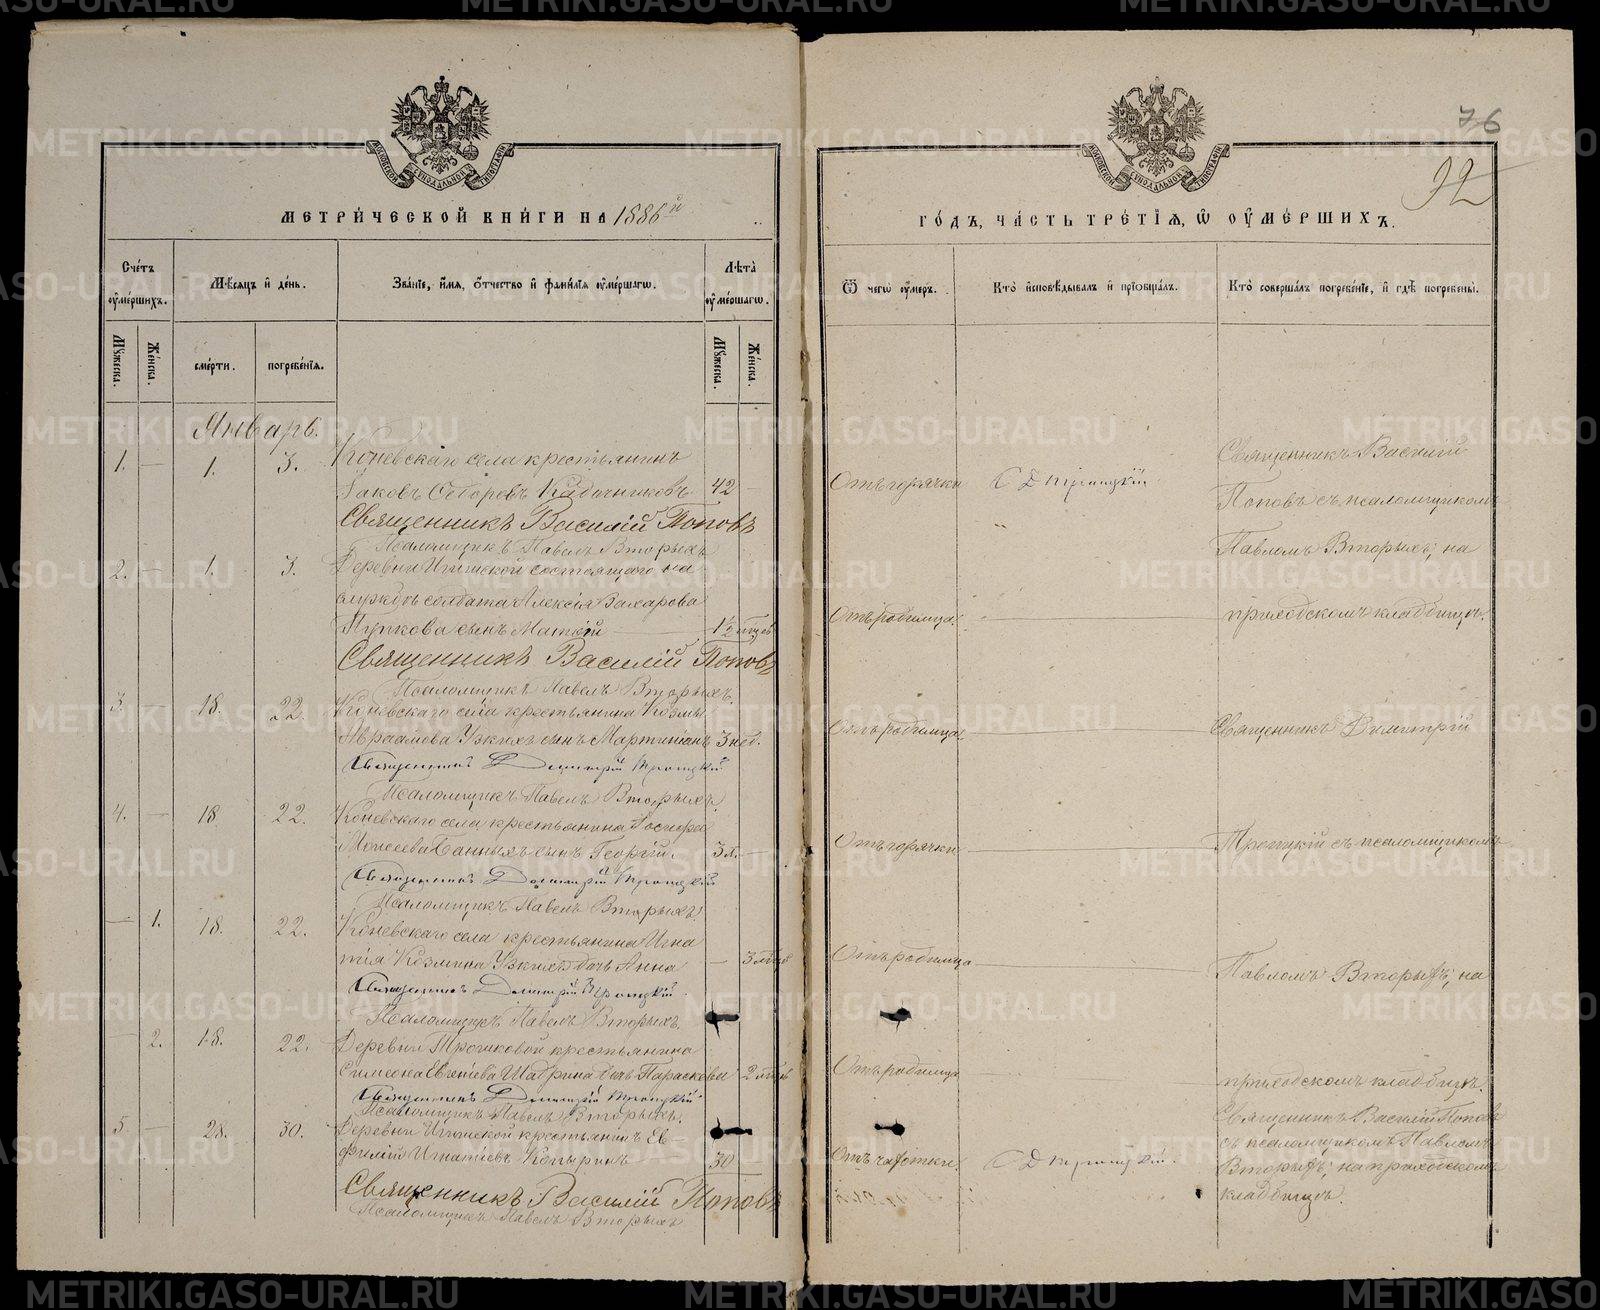 76
92
МЕТРИЧЕСКОЙ КНИГИ НА 1886й
ГОДЪ, ЧАСТЬ ТРЕТІЯ, Ѡ ОУМЕРШИХЪ.
Счетъ оумершихъ.
Мѣсяцъ и день.
Званіе, имя, отчество и фамилія оумершагѡ.
Лѣта оумершагѡ.
Ѿ чегѡ оумеръ.
Кто исповѣдывалъ и пріобщалъ.
Кто совершалъ погребеніе, и гдѣ погребены.
Мужеска.
Женска.
смерти.
погребенія.
Мужеска.
Женска.
Январь.
1. — 1. 3. Коневскаго села крестьянинъ
Іаковъ Ѳедоровъ Кадочниковъ 42 —
Отъ горячки
С Д Троицкій
Священникъ Василій Поповъ
Псаломщикъ Павелъ Вторыхъ
2. — 1. 3. Деревни Игишской состоящаго на
службѣ солдата Алексія Захарова
Пупкова сынъ Матѳій
Отъ родимца.
Священникъ Василій Поповъ
Псаломщикъ Павелъ Вторыхъ
3. — 18. 22. Коневскаго села крестьянина Козмы
Авраамова Узкихъ сынъ Мартиніанъ 3 нед.
Отъ родимца.
Священникъ Димитрій Троицкій
Псаломщикъ Павелъ Вторыхъ
4. — 18. 22. Коневскаго села крестьянина Іосифа
Моисеева Банныхъ сынъ Георгій. 3 л. —
Отъ горячки
Священникъ Димитрій Троицкій
Псаломщикъ Павелъ Вторыхъ
— 1. 18. 22. Коневскаго села крестьянина Игна
тія Козмина Узкихъ дочь Анна — 3 мѣс
Отъ родимца
Священникъ Димитрій Троицкій
Псаломщикъ Павелъ Вторыхъ
2. 18. 22. Деревни Трошковой крестьянина
Симеона Евгеніева Шабрина дочь Параскева 2 мѣс
Отъ родимца
Священникъ Димитрій Троицкій
Псаломщикъ Павелъ Вторыхъ.
5. — 28. 30. Деревни Игишской крестьянинъ Ев
фимій Игнатіевъ Копыринъ 30 —
Отъ чахотки.
С Д Троицкій.
Священникъ Василій Поповъ
Псаломщикъ Павелъ Вторыхъ
Священникъ Василій
Поповъ съ псаломщикомъ
Павломъ Вторыхъ; на
приходскомъ кладбищѣ.
Священникъ Димитрій
Троицкій съ псаломщикомъ
Павломъ Вторыхъ; на
приходскомъ кладбищѣ.
Священникъ Василій Поповъ
съ псаломщикомъ Павломъ
Вторыхъ; на приходскомъ
кладбищѣ.
METRIKI.GASO-URAL.RU